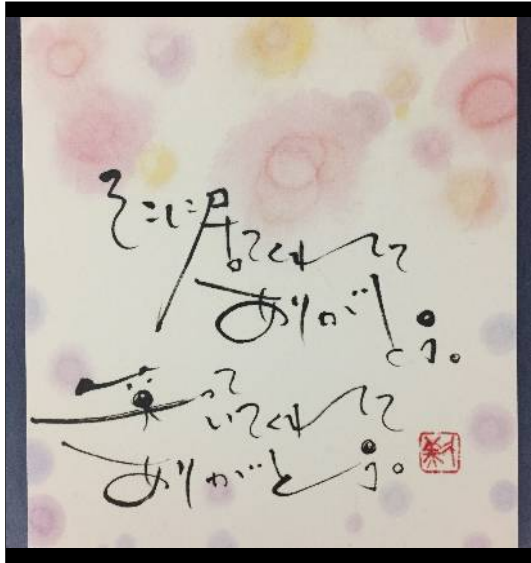 そこに居てくれて
ありがとう。
笑って
いてくれて
ありがとう。